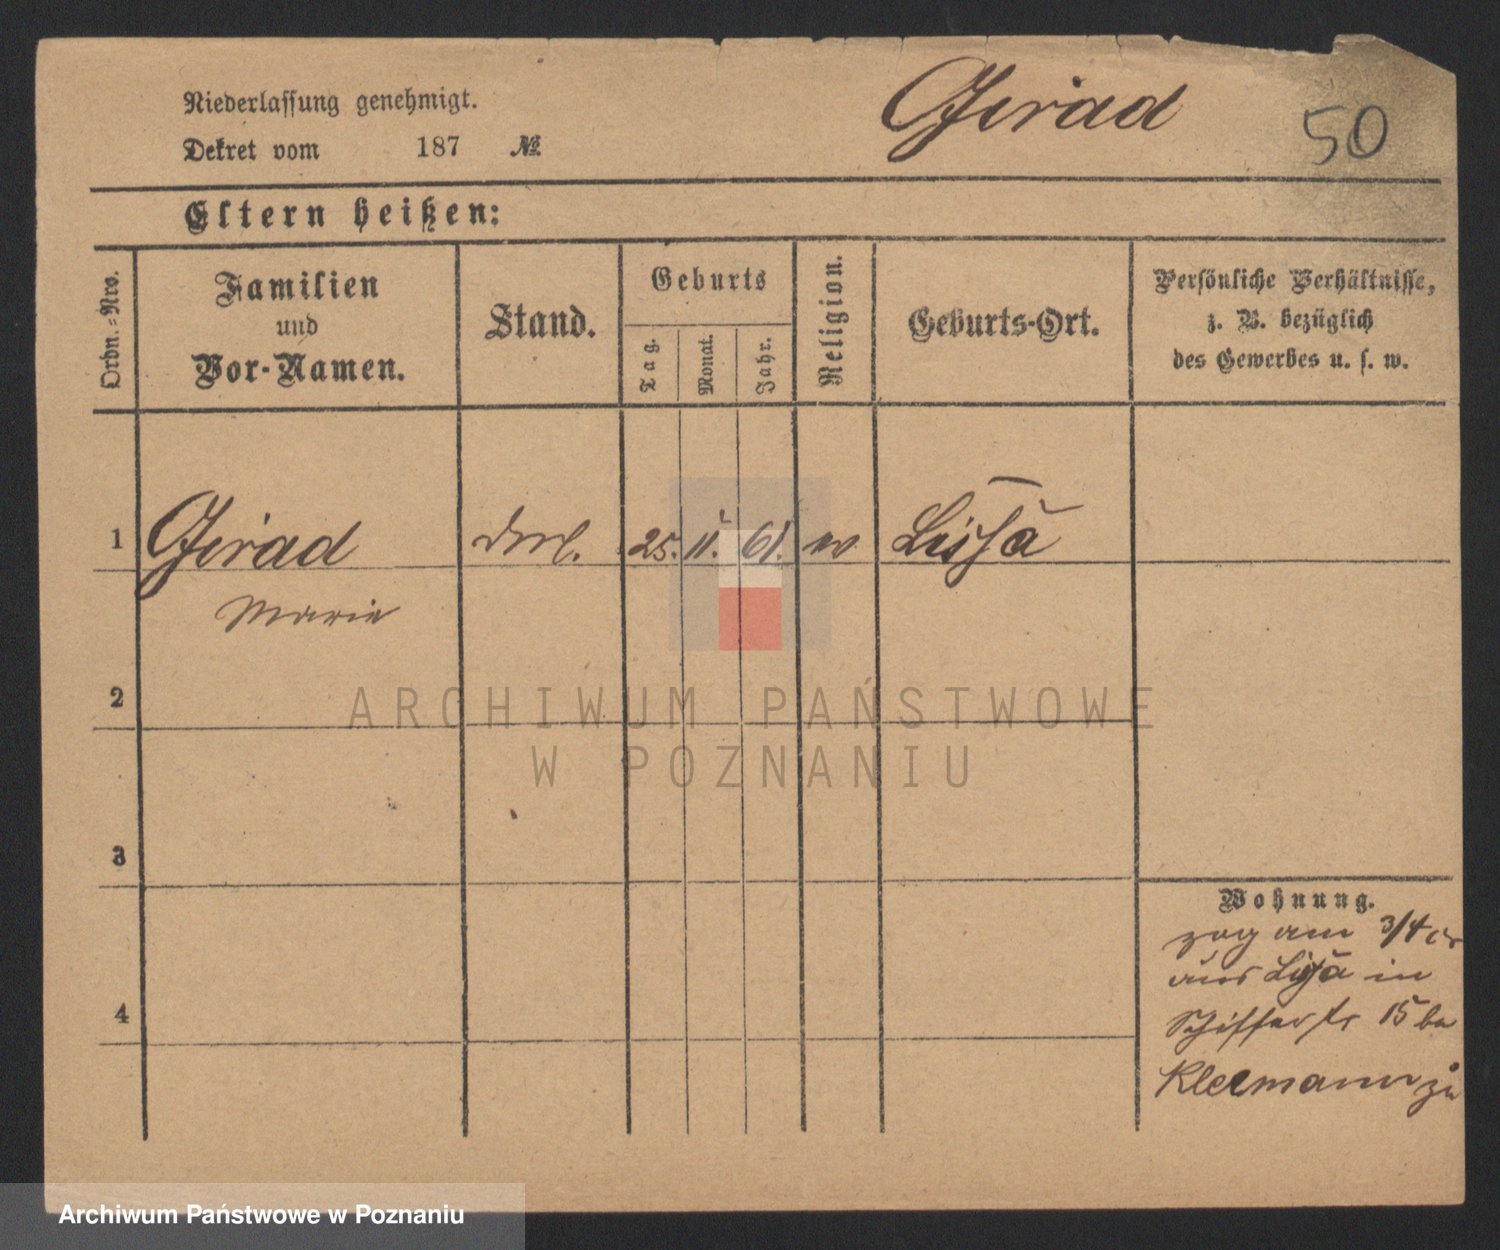 Niederlassung genehmigt.
Girad
50
Dekret vom 187 №
Eltern heißen:
Ordn.=Nro.
Familien
und
Vor-Namen.
Stand.
Geburts
Tag.
Monat.
Jahr.
Religion.
Geburts-Ort.
Persönliche Verhältnisse,
z. B. bezüglich
des Gewerbes u. s. w.
1 Girad 25. 11. 61. Lissa
Marie
2
ARCHIWUM PAŃSTWOWE
W POZNANIU
3
Wohnung.
zog am 3/4 cr
aus Lissa in
Schifferstr 15 bei
Kleemann zu
4
Archiwum Państwowe w Poznaniu